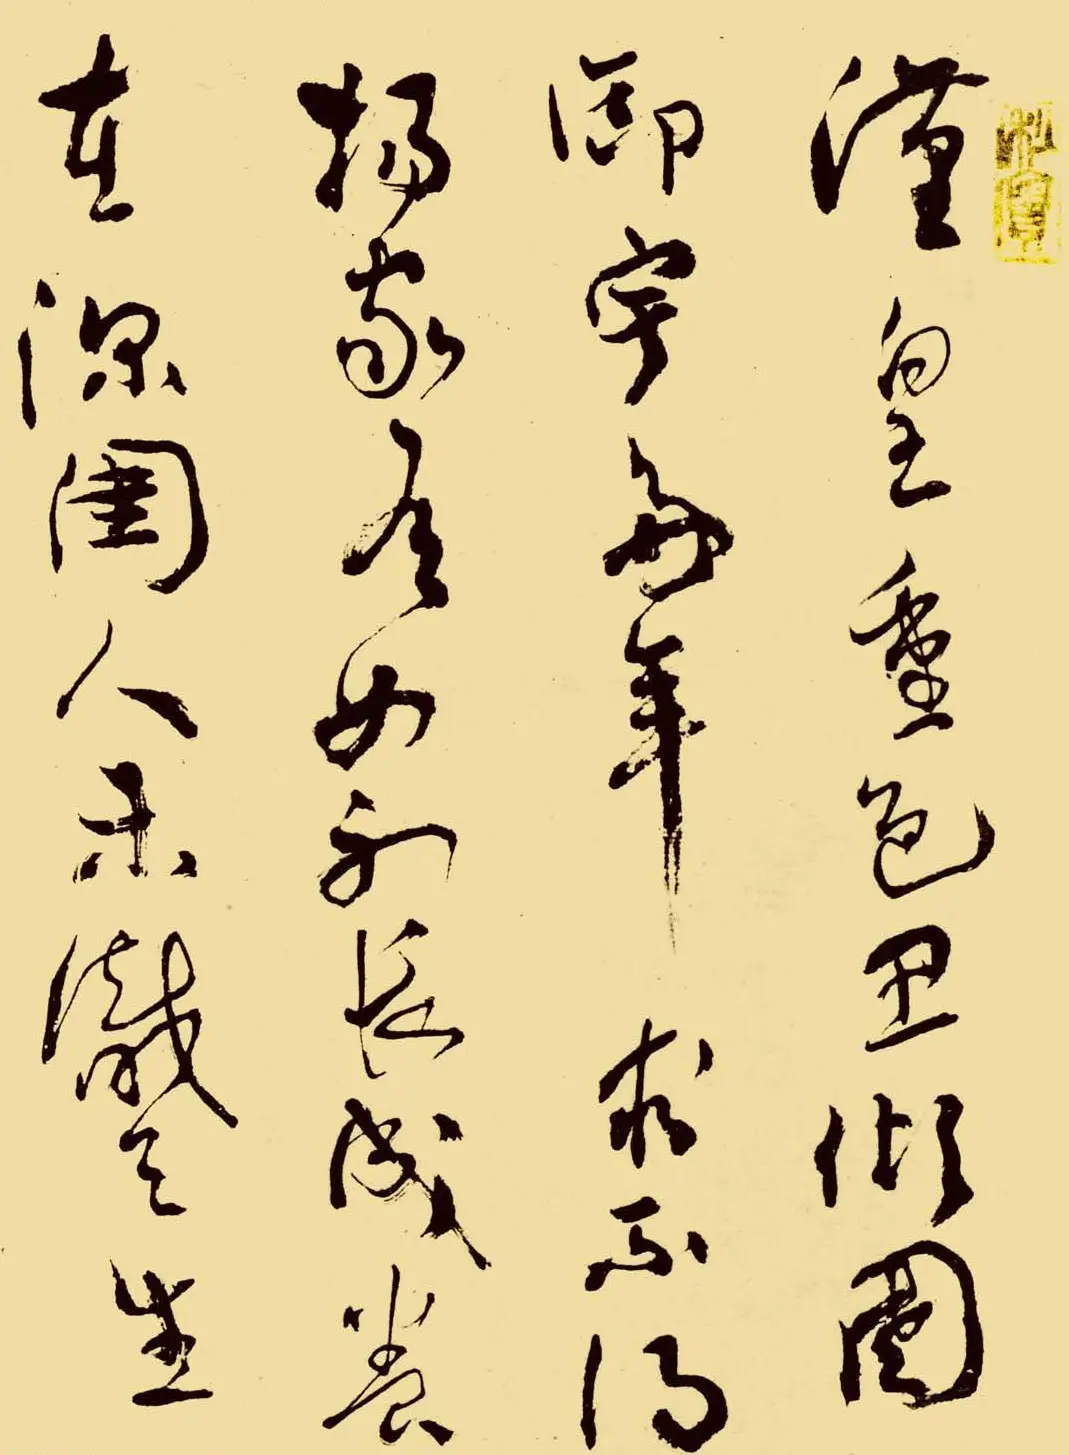 漢皇重色思傾國
御宇多年求不得
楊家有女初長成養
在深閨人未識天生